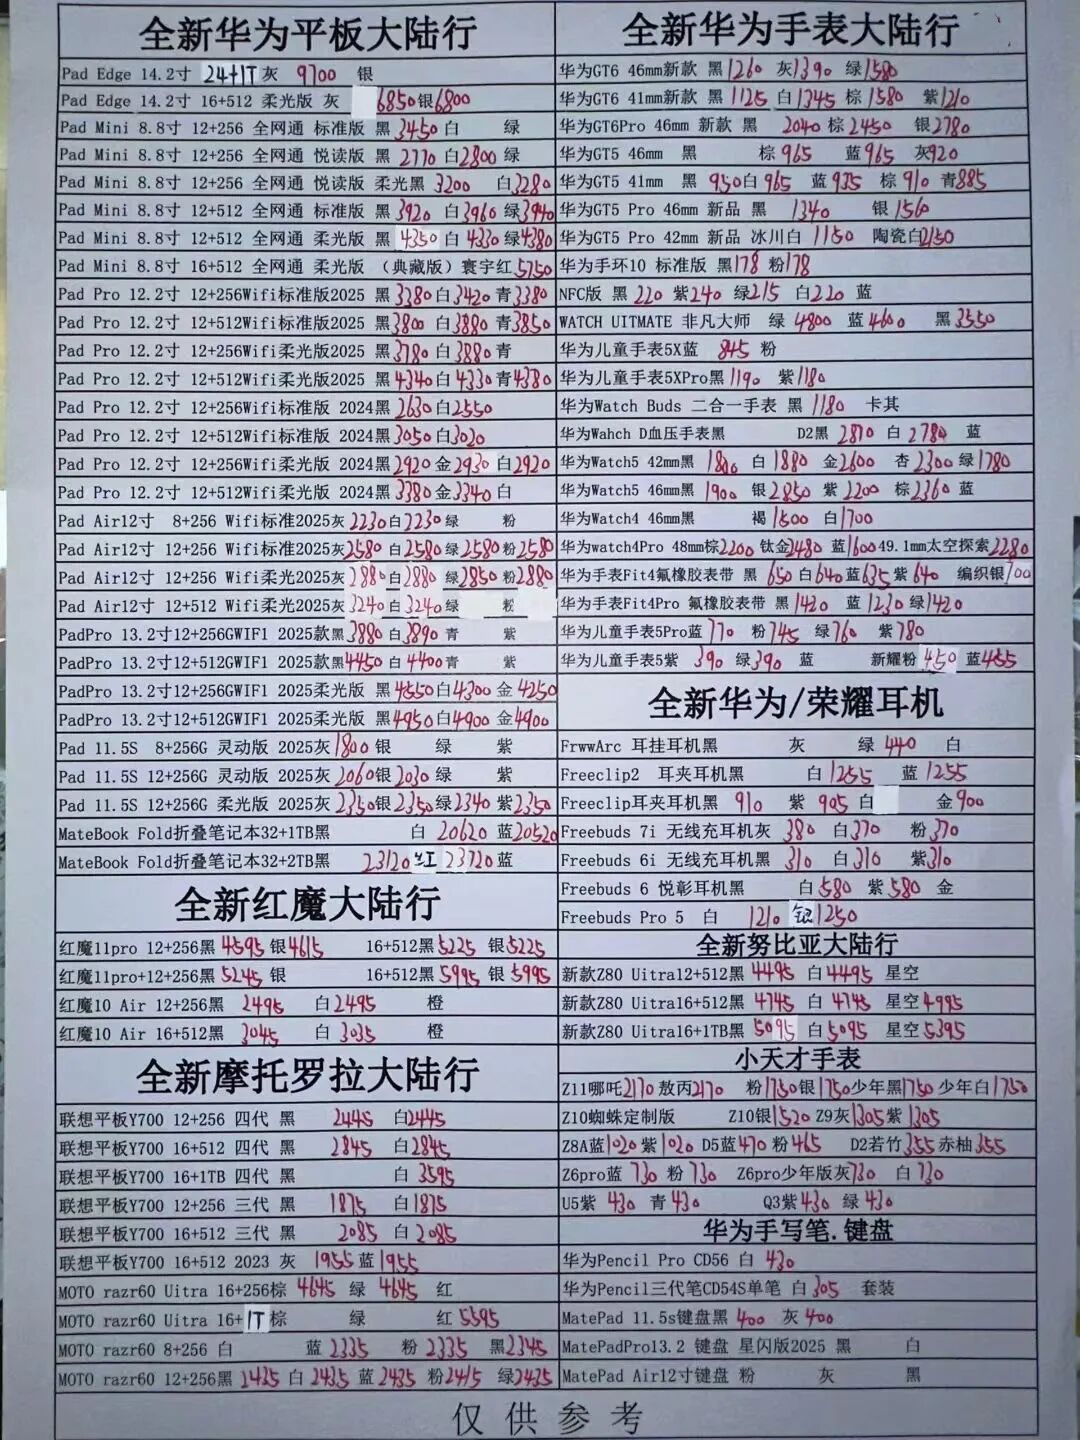 全新华为平板大陆行
Pad Edge 14.2寸 24+1T 灰 9700 银
Pad Edge 14.2寸 16+512 柔光版 灰 6850 银 6800
Pad Mini 8.8寸 12+256 全网通 标准版 黑 3450 白 绿
Pad Mini 8.8寸 12+256 全网通 悦读版 黑 2770 白 2800 绿
Pad Mini 8.8寸 12+256 全网通 悦读版 柔光黑 3200 白 3280
Pad Mini 8.8寸 12+512 全网通 标准版 黑 3920 白 3960 绿 3940
Pad Mini 8.8寸 12+512 全网通 柔光版 黑 4350 白 4330 绿 4380
Pad Mini 8.8寸 16+512 全网通 柔光版 （典藏版）寰宇红 5750
Pad Pro 12.2寸 12+256Wifi标准版2025 黑 3380 白 3420 青 3380
Pad Pro 12.2寸 12+512Wifi标准版2025 黑 3800 白 3880 青 3850
Pad Pro 12.2寸 12+256Wifi柔光版2025 黑 3780 白 3880 青
Pad Pro 12.2寸 12+512Wifi柔光版2025 黑 4340 白 4330 青 4380
Pad Pro 12.2寸 12+256Wifi标准版 2024黑 2630 白 2550
Pad Pro 12.2寸 12+512Wifi标准版 2024黑 3050 白 3020
Pad Pro 12.2寸 12+256Wifi柔光版 2024黑 2920 金 2930 白 2920
Pad Pro 12.2寸 12+512Wifi柔光版 2024黑 3380 金 3340 白
Pad Air12寸 8+256 Wifi标准2025灰 2230 白 2230 绿 粉
Pad Air12寸 12+256 Wifi标准2025灰 2580 白 2580 绿 2580 粉 2580
Pad Air12寸 12+256 Wifi柔光2025灰 2880 白 2880 绿 2850 粉 2880
Pad Air12寸 12+512 Wifi柔光2025灰 3240 白 3240 绿 粉
PadPro 13.2寸12+256GWIF1 2025款黑 3880 白 3890 青 紫
PadPro 13.2寸12+512GWIF1 2025款黑 4450 白 4400 青 紫
PadPro 13.2寸12+256GWIF1 2025柔光版 黑 4550 白 4300 金 4250
PadPro 13.2寸12+512GWIF1 2025柔光版 黑 4950 白 4900 金 4900
Pad 11.5S 8+256G 灵动版 2025灰 1800 银 绿 紫
Pad 11.5S 12+256G 灵动版 2025灰 2060 银 2030 绿 紫
Pad 11.5S 12+256G 柔光版 2025灰 2350 银 2350 绿 2340 紫 2350
MateBook Fold折叠笔记本32+1TB黑 白 20620 蓝 20520
MateBook Fold折叠笔记本32+2TB黑 23120 红 23720 蓝
全新红魔大陆行
红魔11pro 12+256黑 4595 银 4615 16+512黑 5225 银 5225
红魔11pro+12+256黑 5245 银 16+512黑 5995 银 5995
红魔10 Air 12+256黑 2495 白 2495 橙
红魔10 Air 16+512黑 3045 白 3035 橙
全新摩托罗拉大陆行
联想平板Y700 12+256 四代 黑 2445 白 2445
联想平板Y700 16+512 四代 黑 2845 白 2845
联想平板Y700 16+1TB 四代 黑 白 3595
联想平板Y700 12+256 三代 黑 1875 白 1875
联想平板Y700 16+512 三代 黑 2085 白 2085
联想平板Y700 16+512 2023 灰 1955 蓝 1955
MOTO razr60 Uitra 16+256棕 4645 绿 4645 红
MOTO razr60 Uitra 16+1T 棕 绿 红 5595
MOTO razr60 8+256 白 蓝 2335 粉 2335 黑 2345
MOTO razr60 12+256黑 2435 白 2435 蓝 2435 粉 2415 绿 2435
全新华为手表大陆行
华为GT6 46mm新款 黑 1260 灰 1390 绿 1580
华为GT6 41mm新款 黑 1125 白 1345 棕 1580 紫 1210
华为GT6Pro 46mm 新款 黑 2040 棕 2450 银 2780
华为GT5 46mm 黑 棕 965 蓝 965 灰 920
华为GT5 41mm 黑 950 白 965 蓝 935 棕 910 青 885
华为GT5 Pro 46mm 新品 黑 1340 银 1560
华为GT5 Pro 42mm 新品 冰川白 1150 陶瓷白 2150
华为手环10 标准版 黑 178 粉 178
NFC版 黑 220 紫 240 绿 215 白 220 蓝
WATCH UITMATE 非凡大师 绿 4800 蓝 4600 黑 3550
华为儿童手表5X蓝 845 粉
华为儿童手表5XPro黑 1190 紫 1180
华为Watch Buds 二合一手表 黑 1180 卡其
华为Wahch D血压手表黑 D2黑 2870 白 2780 蓝
华为Watch5 42mm黑 1800 白 1880 金 2600 杏 2300 绿 1780
华为Watch5 46mm黑 1900 银 2850 紫 2200 棕 2360 蓝
华为Watch4 46mm黑 褐 1600 白 1700
华为watch4Pro 48mm棕 2200 钛金 2480 蓝 1600 49.1mm太空探索 2280
华为手表Fit4氟橡胶表带 黑 650 白 640 蓝 635 紫 640 编织银 700
华为手表Fit4Pro 氟橡胶表带 黑 1420 蓝 1230 绿 1420
华为儿童手表5Pro蓝 770 粉 745 绿 760 紫 780
华为儿童手表5紫 390 绿 390 蓝 新耀粉 450 蓝 455
全新华为/荣耀耳机
FrwwArc 耳挂耳机黑 灰 绿 440 白
Freeclip2 耳夹耳机黑 白 1255 蓝 1255
Freeclip耳夹耳机黑 910 紫 905 白 金 900
Freebuds 7i 无线充耳机灰 380 白 370 粉 370
Freebuds 6i 无线充耳机黑 310 白 310 紫 310
Freebuds 6 悦彰耳机黑 白 580 紫 580 金
Freebuds Pro 5 白 1210 银 1250
全新努比亚大陆行
新款Z80 Uitra12+512黑 4495 白 4495 星空
新款Z80 Uitra16+512黑 4745 白 4745 星空 4995
新款Z80 Uitra16+1TB黑 5095 白 5095 星空 5395
小天才手表
Z11哪吒 2170 敖丙 2170 粉 1750 银 1750 少年黑 1750 少年白 1750
Z10蜘蛛定制版 Z10银 1520 Z9灰 1305 紫 1305
Z8A蓝 1020 紫 1020 D5蓝 470 粉 465 D2若竹 355 赤柚 355
Z6pro蓝 730 粉 730 Z6pro少年版灰 730 白 730
U5紫 430 青 430 Q3紫 430 绿 430
华为手写笔.键盘
华为Pencil Pro CD56 白 430
华为Pencil三代笔CD54S单笔 白 305 套装
MatePad 11.5s键盘黑 400 灰 400
MatePadPro13.2 键盘 星闪版2025 黑 白
MatePad Air12寸键盘 粉 灰 黑
仅供参考